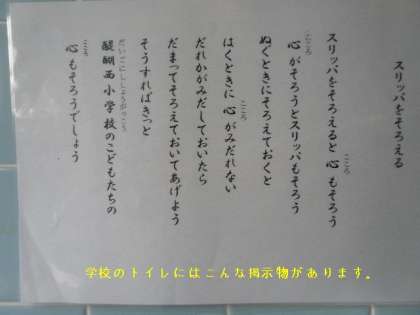 スリッパをそろえる
スリッパをそろえると心もそろう
こころ
心がそろうとスリッパもそろう
こころ
ぬぐときにそろえておくと
はくときに心がみだれない
こころ
だれかがみだしておいたら
だまってそろえておいてあげよう
そうすればきっと
醍醐西小学校のこどもたちの
だいごにししょうがっこう
心もそろうでしょう
こころ
学校のトイレにはこんな掲示物があります。